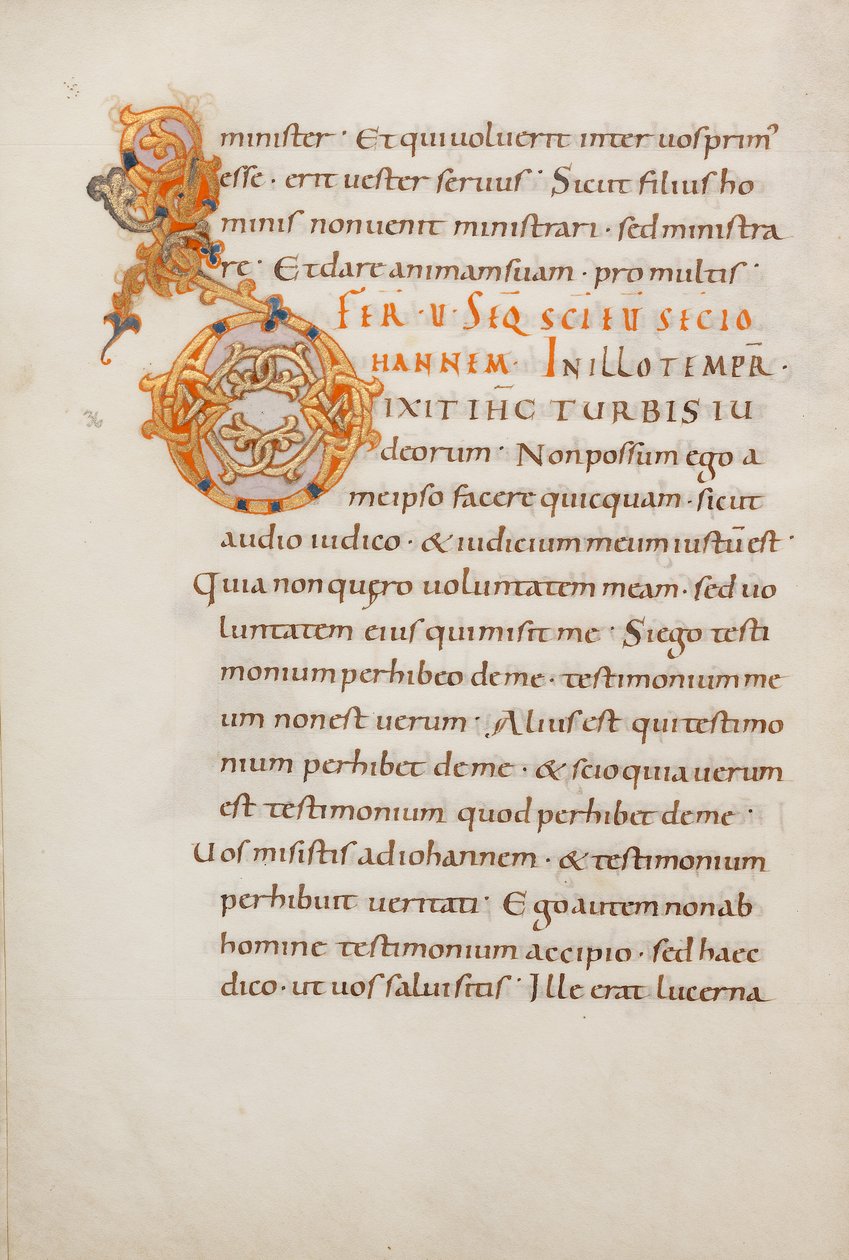 minister · Et qui uoluerit inter uos primꝰ
esse · erit uester seruus · Sicut filius ho
minis non uenit ministrari · sed ministra
re · Et dare animam suam · pro multis ·
FER · U · SEQ̄ SC̄I EŪ SECÍO
HANNEM · IN ILLO TEMPR̄ ·
DIXIT IH̄C TURBIS IU
deorum · Non possum ego a
meipso facere quicquam · sicut
audio iudico · & iudicium meum iustū est ·
Quia non quęro uoluntatem meam · sed uo
luntatem eius qui misit me · Si ego testi
monium perhibeo de me · testimonium me
um non est uerum · Alius est qui testimo
nium perhibet de me · & scio quia uerum
est testimonium quod perhibet de me ·
Uos misistis ad iohannem · & testimonium
perhibuit ueritati · Ego autem non ab
homine testimonium accipio · sed haec
dico · ut uos salui sitis · Ille erat lucerna
36